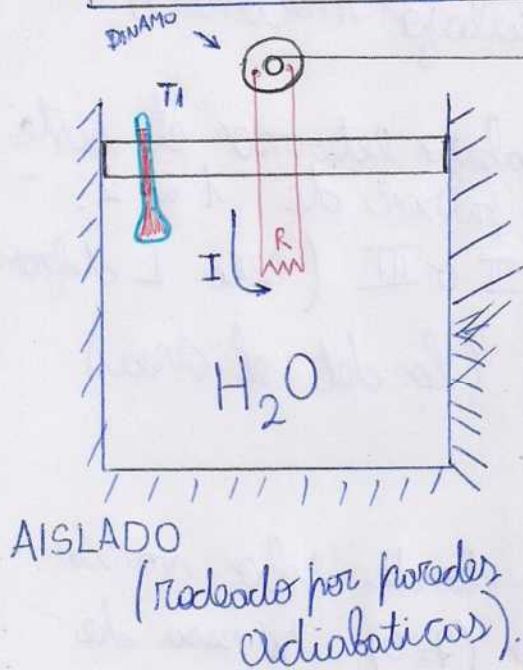 DINAMO
T1
R
I
H₂O
AISLADO
(rodeado por paredes
adiabaticas).